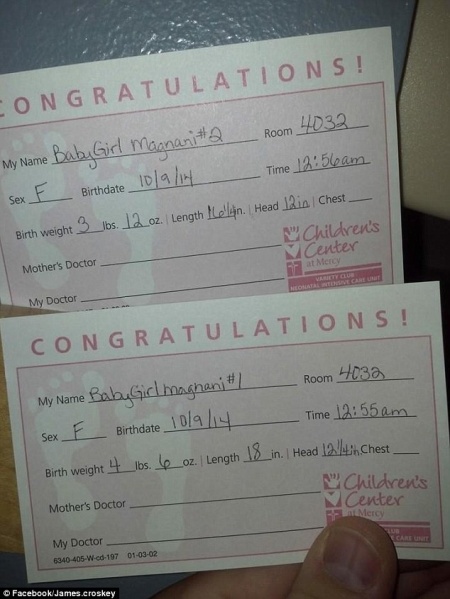 CONGRATULATIONS!
My Name BabyGirl Magnani #2 Room 4032
Sex F Birthdate 10/9/14 Time 12:56am
Birth weight 3 lbs. 12 oz. | Length in. | Head 12in | Chest
Mother's Doctor
My Doctor
Children's
Center
at Mercy
VARIETY CLUB
NEONATAL INTENSIVE CARE UNIT
CONGRATULATIONS!
My Name BabyGirl magnani #1 Room 4032
Sex F Birthdate 10/9/14 Time 12:55am
Birth weight 4 lbs. 6 oz. | Length 18 in. | Head 12 1/4 in Chest
Mother's Doctor
My Doctor
Children's
Center
at Mercy
CLUB
CARE UNIT
6340-405-W-cd-197 01-03-02
© Facebook/James.croskey